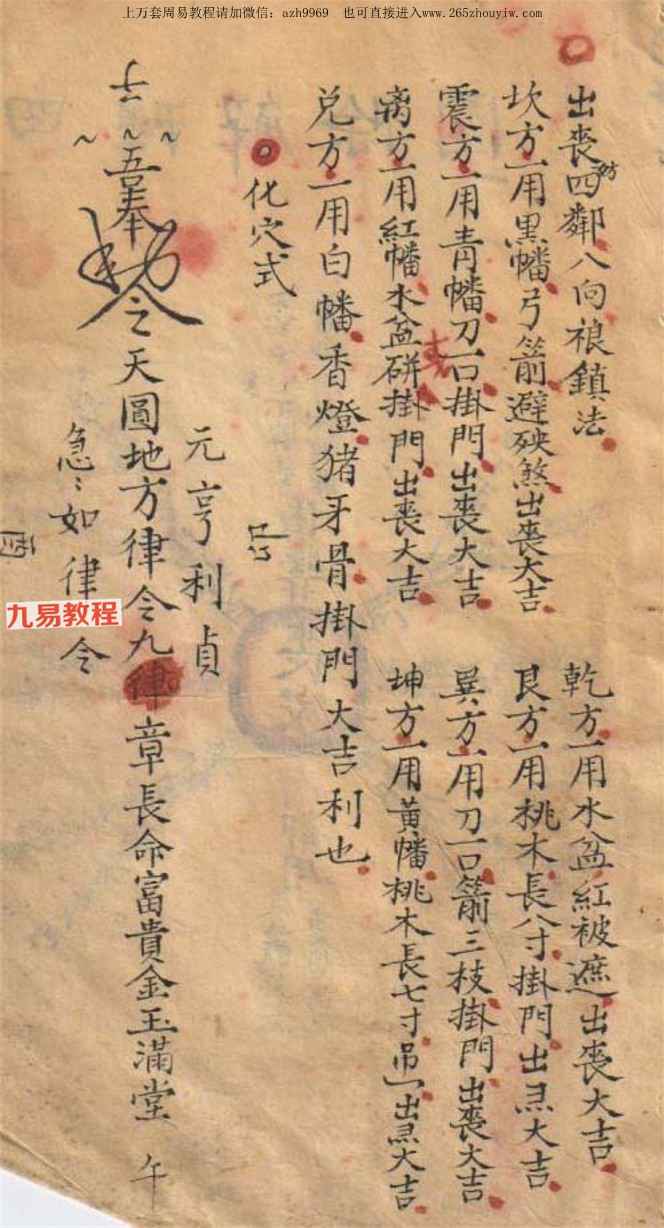 上万套周易教程请加微信：azh9969 也可直接进入www.265zhouyiw.com
出喪四鄰八向禳鎮法
坎方一用黑幡弓箭避殃煞出喪大吉
乾方一用水盆紅被遮出喪大吉
震方一用青幡刀一口掛門出喪大吉
艮方一用桃木長八寸掛門出䘮大吉
离方一用紅幡水盆硑掛門出喪大吉
巽方一用刀一口箭三枝掛門出喪大吉
兑方一用白幡香燈猪牙骨掛門大吉利也
坤方一用黃幡桃木長七寸吊一出䘮大吉
化穴式
元亨利貞
奉
令天圓地方律令九律章長命富貴金玉滿堂 午
急：如律令
九易教程